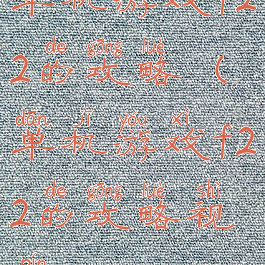 单机游戏f2
de gōng lüè
2的攻略（
dān jī yóu xì
单机游戏f2
de gōng lüè shì
2的攻略视